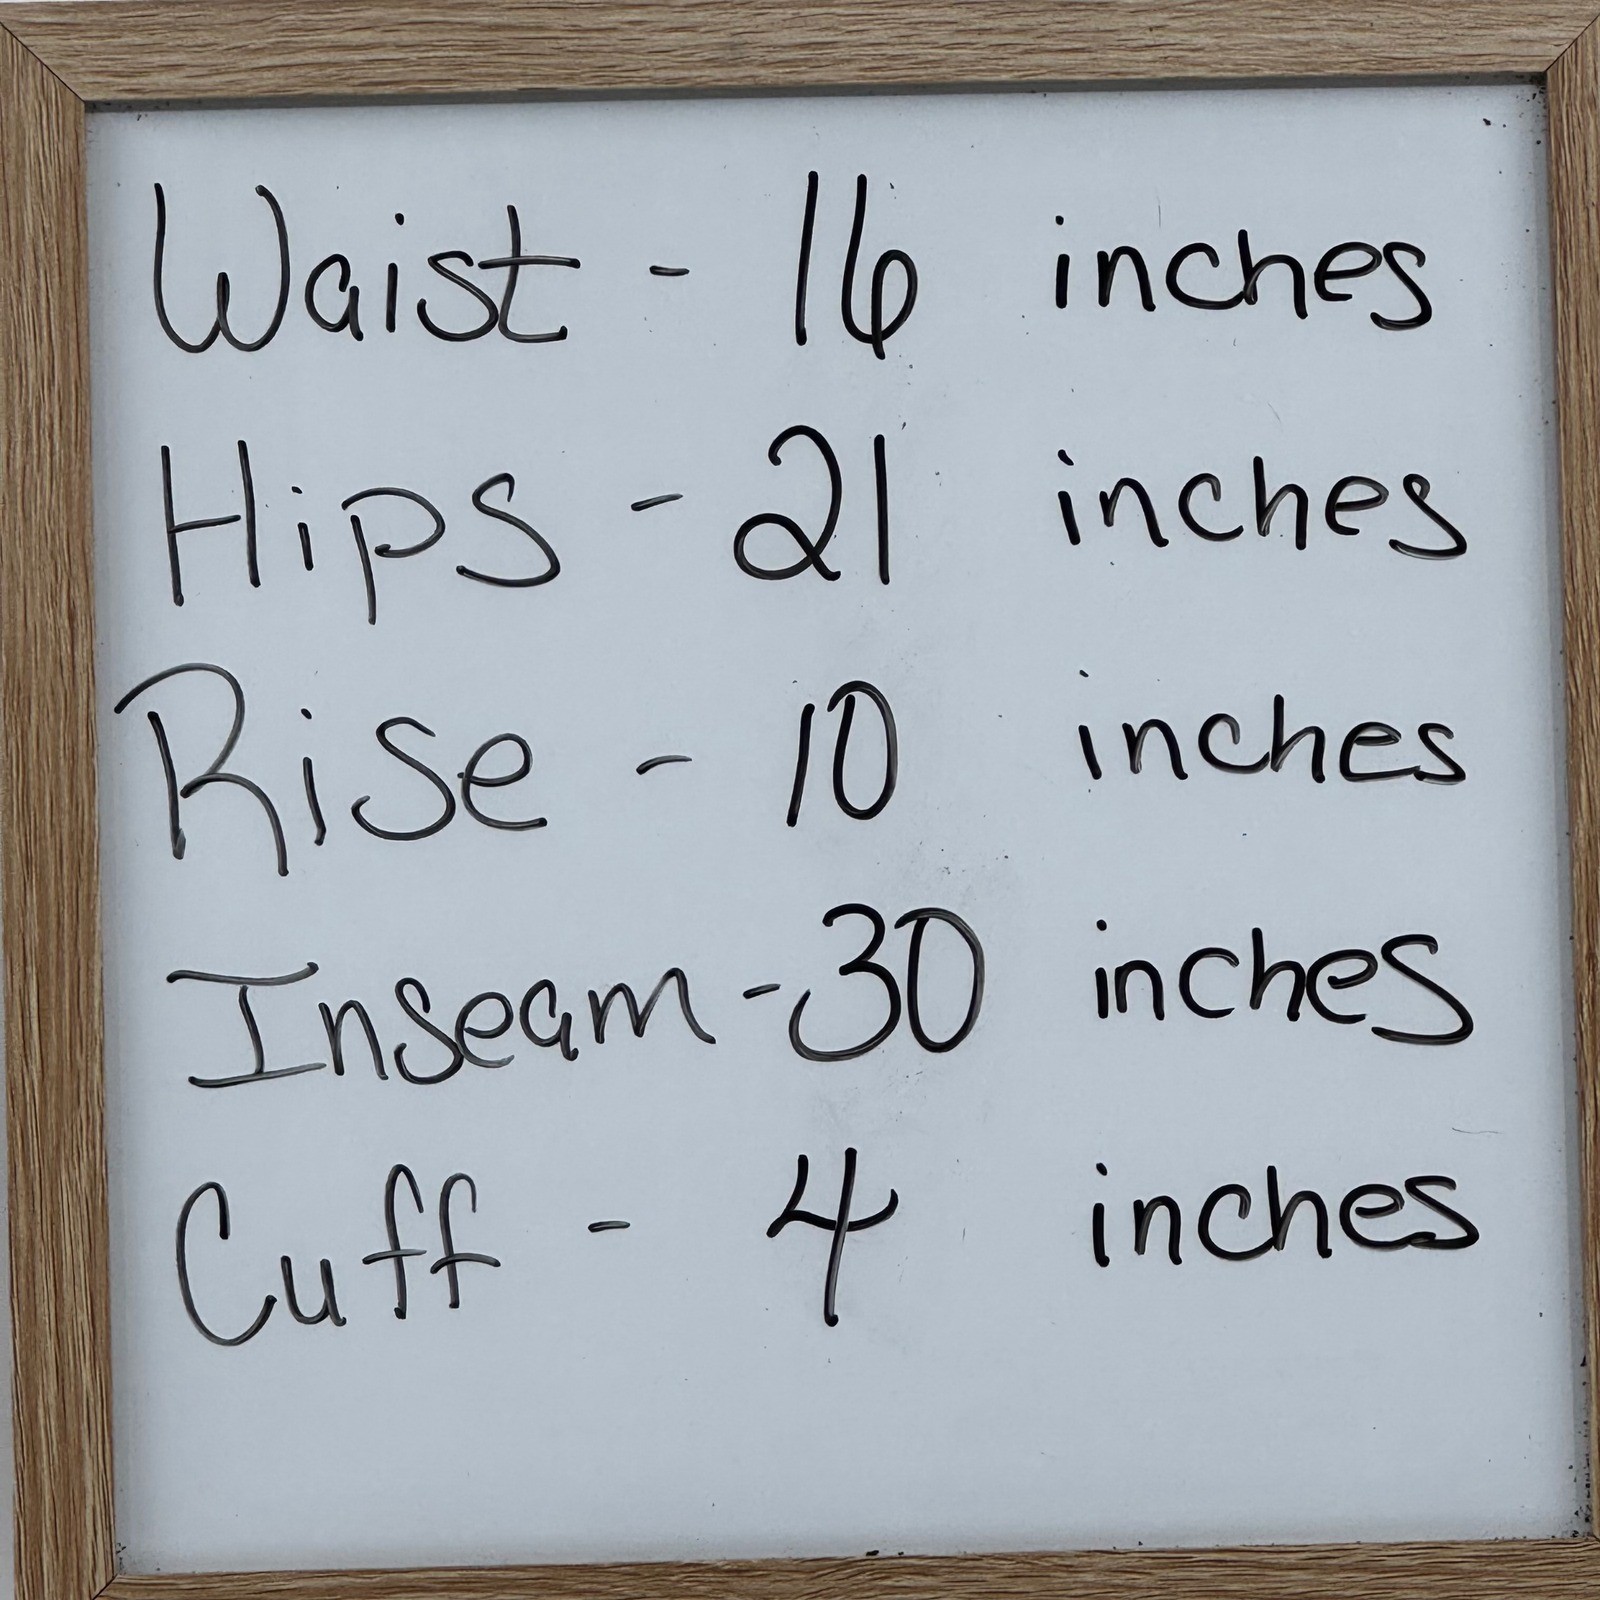 Waist - 16 inches
Hips - 21 inches
Rise - 10 inches
Inseam - 30 inches
Cuff - 4 inches